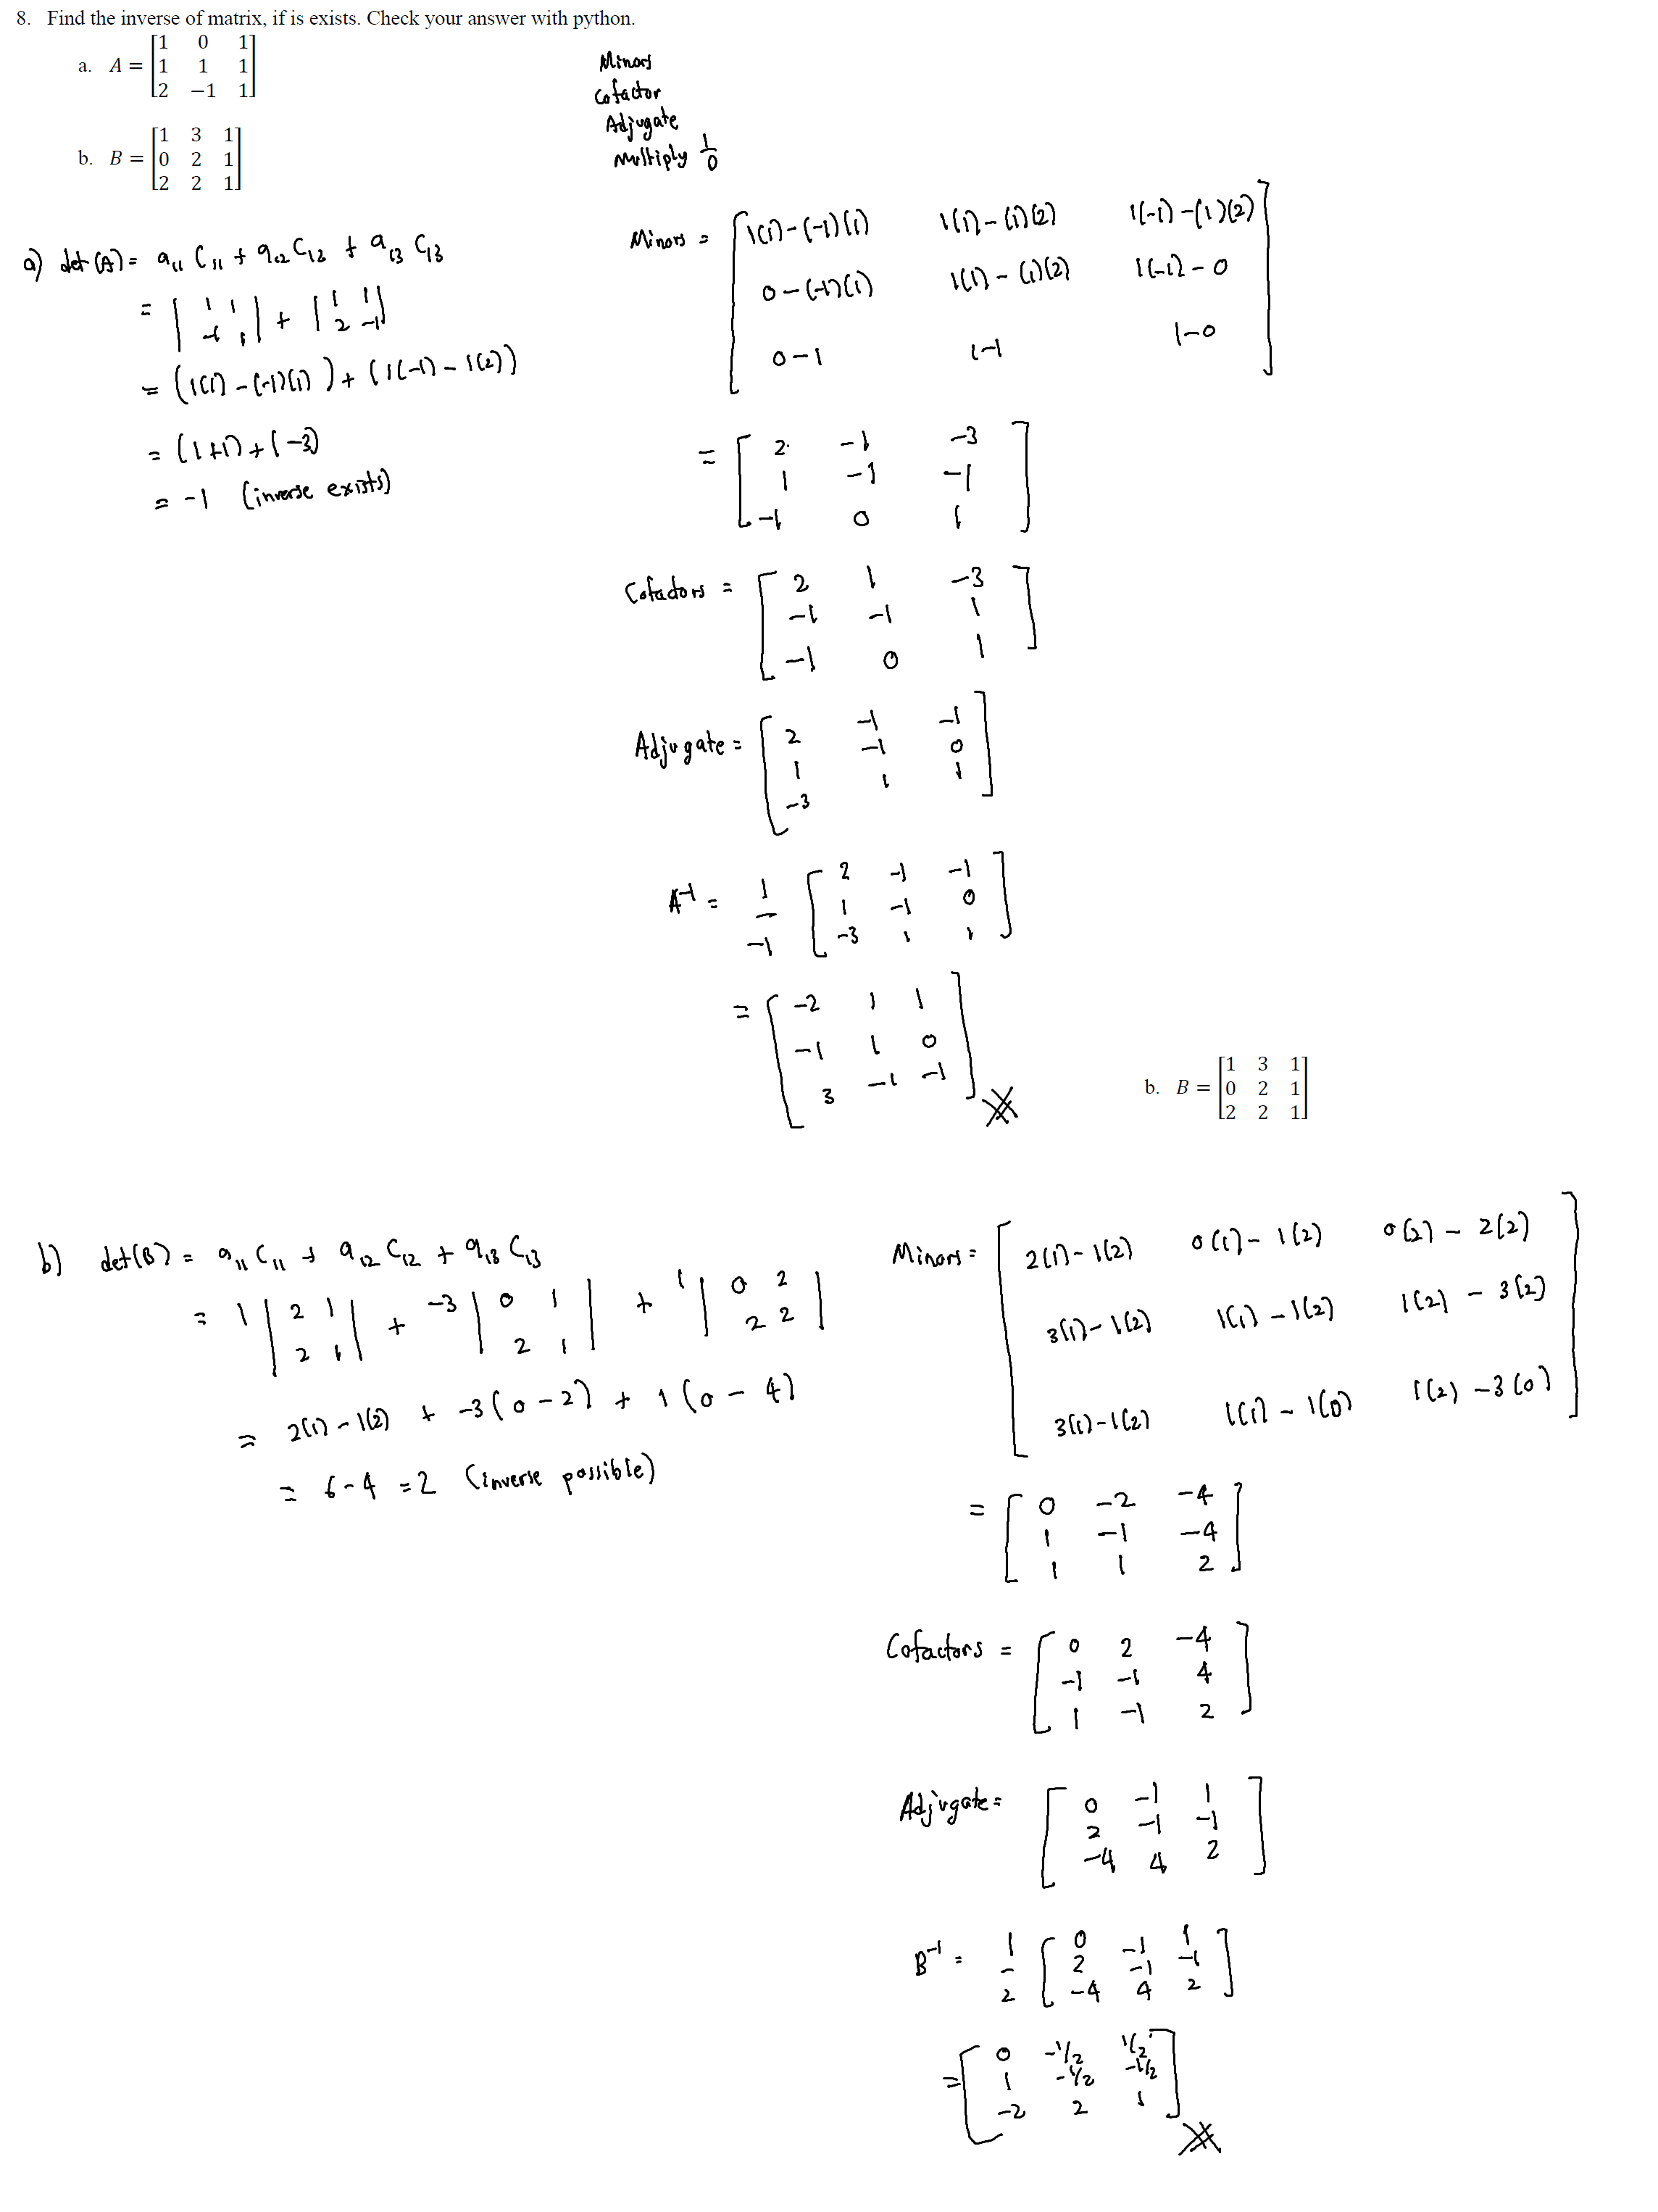 8. Find the inverse of matrix, if is exists. Check your answer with python.
a. A = [1 0 1
1 1 1
2 −1 1]
b. B = [1 3 1
0 2 1
2 2 1]
Minors
Cofactor
Adjugate
Multiply 1/D
a) det(A) = a11 C11 + a12 C12 + a13 C13
= |1 1
-1 1| + |1 1
2 -1|
= (1(1) - (-1)(1)) + (1(-1) - 1(2))
= (1+1) + (-3)
= -1 (inverse exists)
Minors = [1(1)-(-1)(1) 1(1)-(1)(2) 1(-1)-(1)(2)
0-(-1)(1) 1(1)-(1)(2) 1(-1)-0
0-1 1-1 1-0]
= [2 -1 -3
1 -1 -1
-1 0 1]
Cofactors = [2 1 -3
-1 -1 1
-1 0 1]
Adjugate = [2 -1 -1
1 -1 0
-3 1 1]
A^-1 = 1/-1 [2 -1 -1
1 -1 0
-3 1 1]
= [-2 1 1
-1 1 0
3 -1 -1]
b. B = [1 3 1
0 2 1
2 2 1]
b) det(B) = a11 C11 + a12 C12 + a13 C13
= 1 |2 1
2 1| + -3 |0 1
2 1| + 1 |0 2
2 2|
= 2(1) - 1(2) + -3(0-2) + 1(0-4)
= 6-4 = 2 (inverse possible)
Minors = [2(1)-1(2) 0(1)-1(2) 0(2)-2(2)
3(1)-1(2) 1(1)-1(2) 1(2)-3(2)
3(1)-1(2) 1(1)-1(0) 1(2)-3(0)]
= [0 -2 -4
1 -1 -4
1 1 2]
Cofactors = [0 2 -4
-1 -1 4
1 -1 2]
Adjugate = [0 -1 1
2 -1 -1
-4 4 2]
B^-1 = 1/2 [0 -1 1
2 -1 -1
-4 4 2]
= [0 -1/2 1/2
1 -1/2 -1/2
-2 2 1]